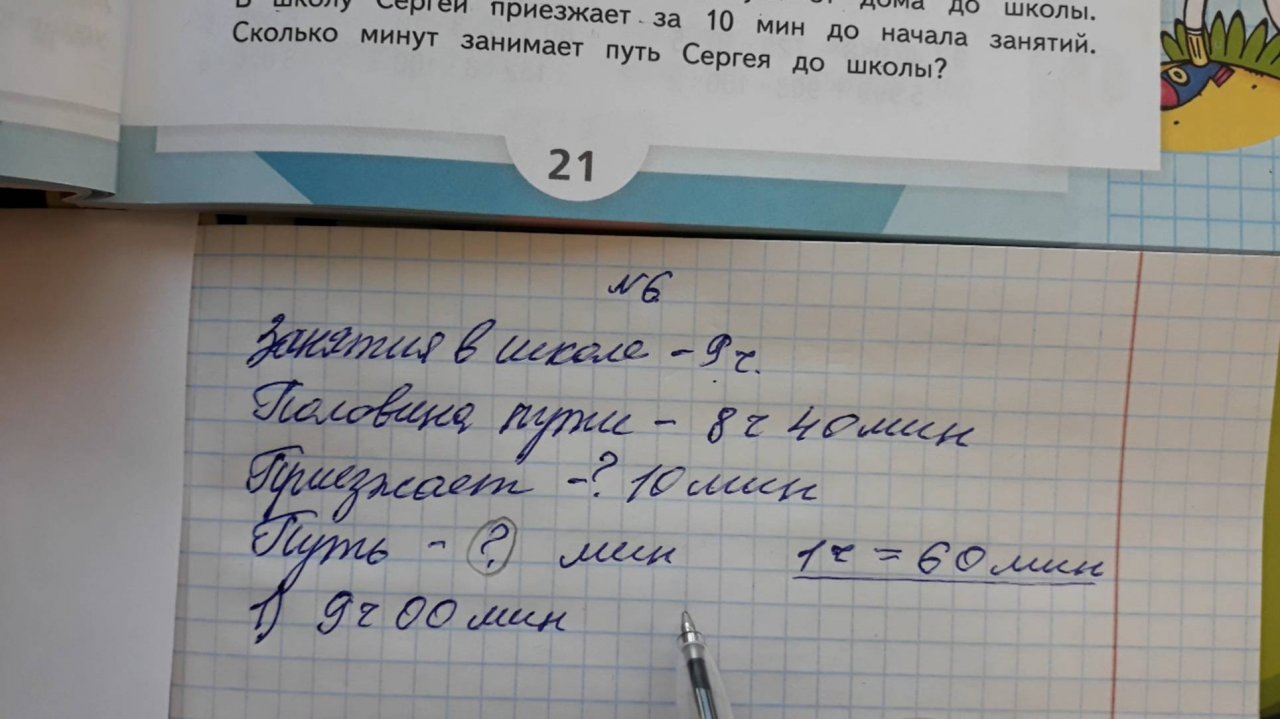 В школу Сергей приезжает за 10 мин до начала занятий.
Сколько минут занимает путь Сергея до школы?
21
№6
Занятия в школе - 9 ч.
Половина пути - 8 ч 40 мин
Приезжает -? 10 мин
Путь - ? мин 1 ч = 60 мин
1) 9 ч 00 мин